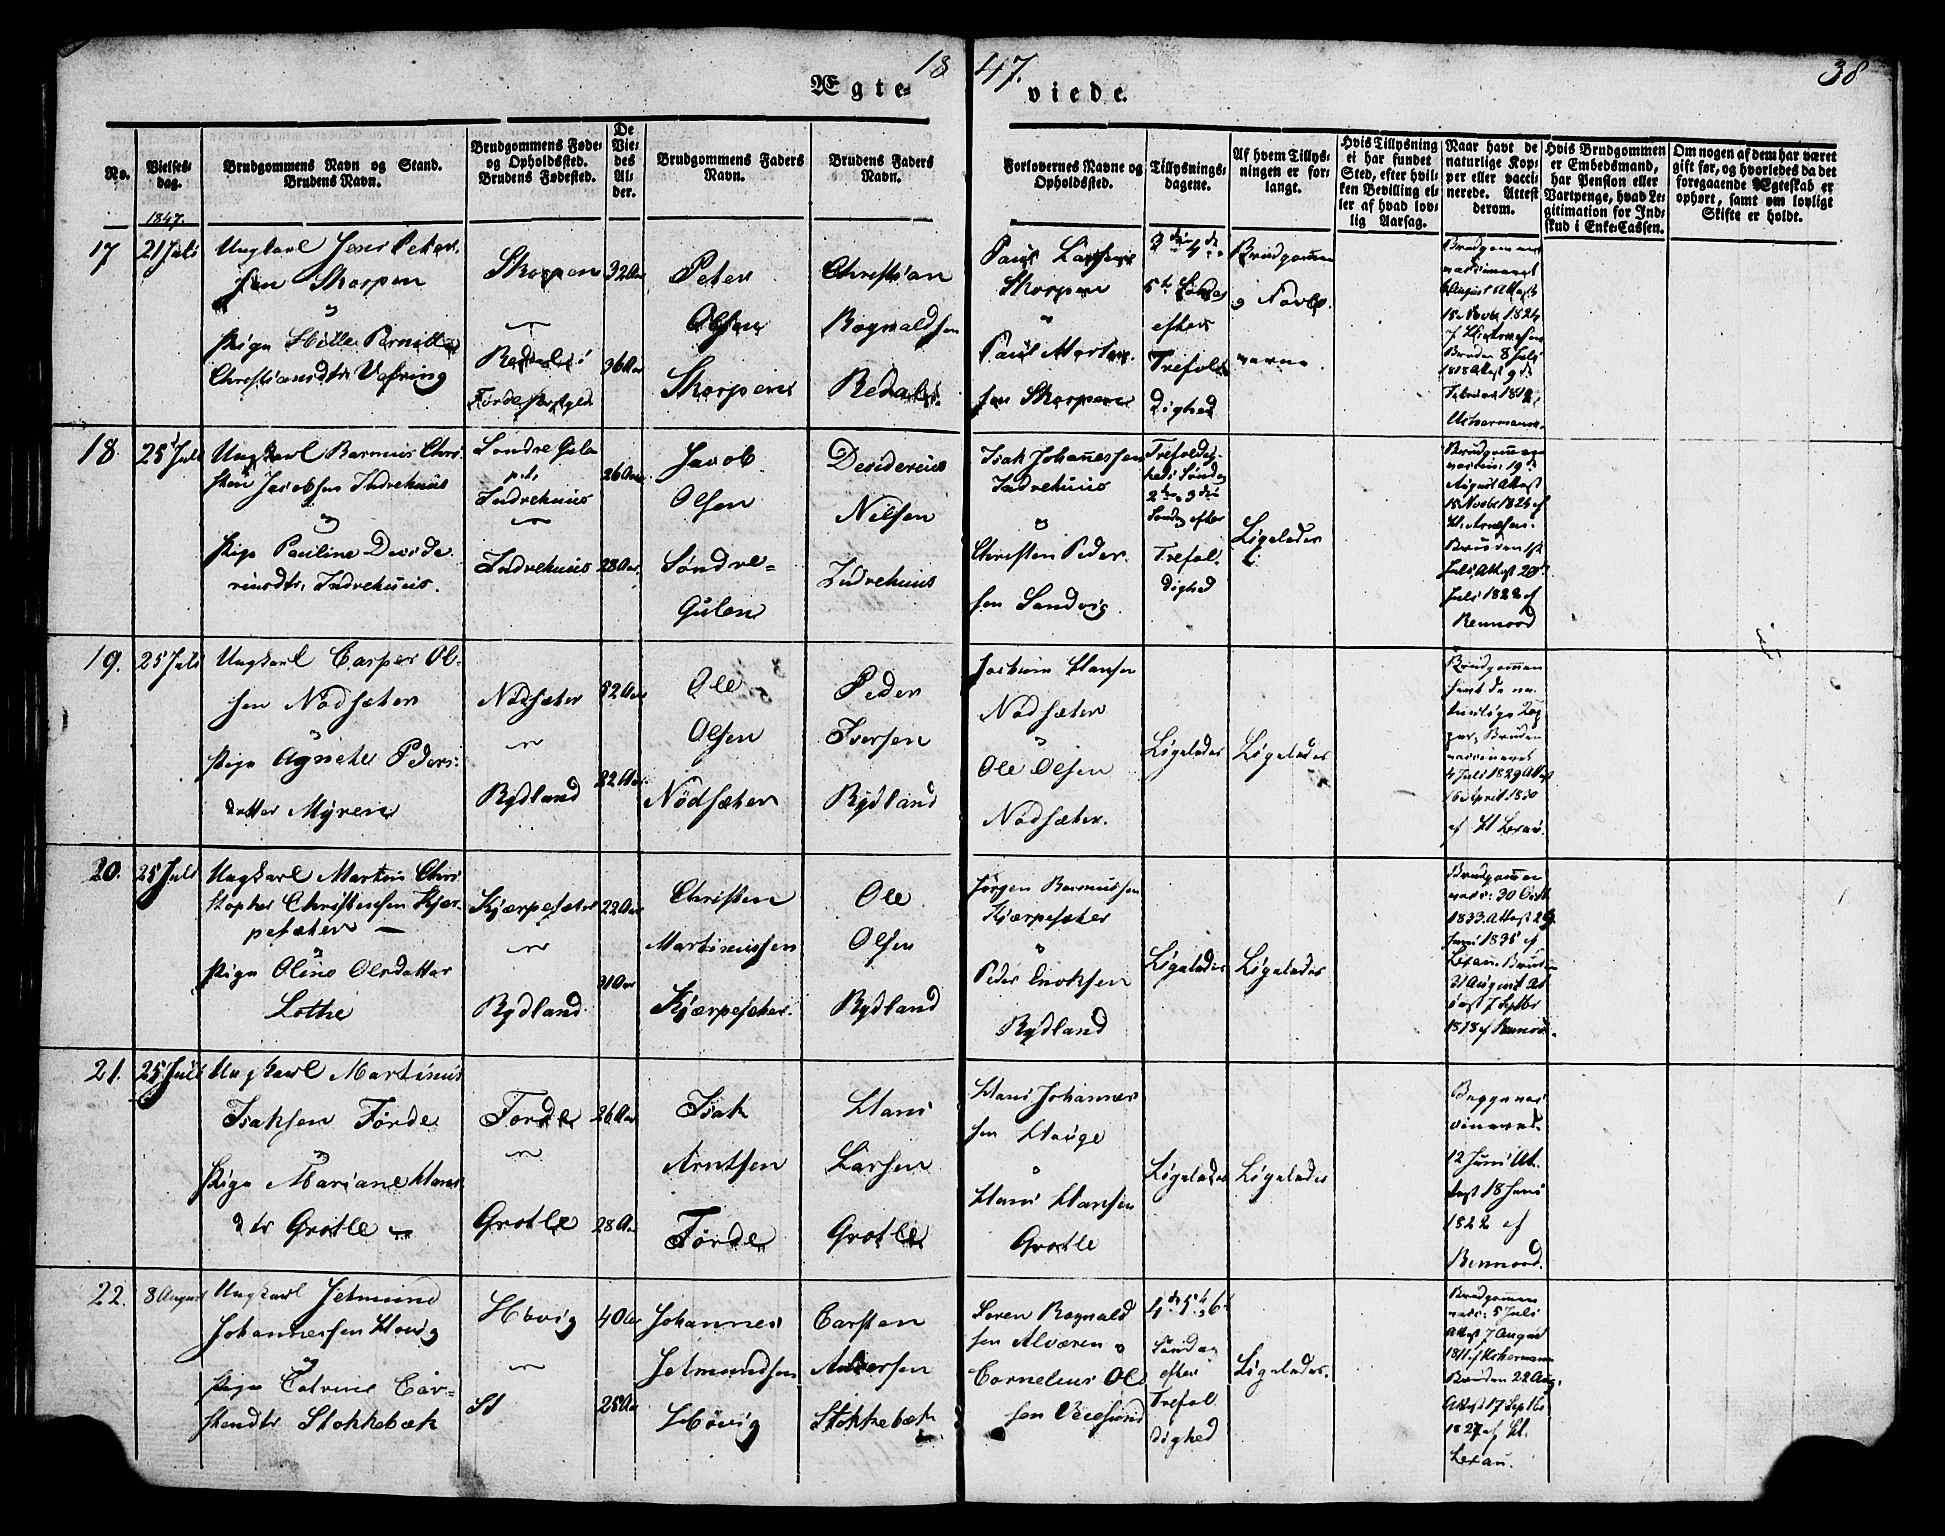 18 47.
38
Ægte-
viede.
No.
Vielses-
dag.
Brudgommens Navn og Stand.
Brudens Navn.
Brudgommens Føde-
og Opholdssted.
Brudens Fødested.
De
Vie-
des
Al-
der.
Brudgommens Faders
Navn.
Brudens Faders
Navn.
Forlovernes Navne og
Opholdssted.
Tillysnings-
dagene.
Af hvem Tillys-
ningen er for-
langt.
Hvis Tillysning
ei har fundet
Sted, efter hvil-
ken Bevilling el-
ler af hvad lov-
lig Aarsag.
Naar havt de
naturlige Kop-
per eller vacci-
nerede. Attest
derom.
Hvis Brudgommen
er Embedsmand,
har Pension eller
Vartpenge, hvad Le-
gitimation for Ind-
skud i Enke-Cassen.
Om nogen af dem har været
gift før, og hvorledes da det
foregaaende Ægteskab er
ophørt, samt om lovligt
Skifte er holdt.
1847.
17
21 Juli
Ungkarl Jens Peter-
sen Skorpen
og
Pige Hille Pernille
Christiansdtr
Skorpen
Førde Præstgld
32 Aar
36 Aar
Peter
Olsen
Skorpen
Christian
Rognaldsen
Redal
Paul Larsen
Skorpen
og
Paul Morten-
sen Skorpen
3die 4de
5te Søndag
efter
Trefol-
dighed
Brudgommen
Brudgommen
vaccineret
August Attest
15 Novbr 1824
Bruden 8 Juli
1818 Attest 9de
18.
25 Juli
Ungkarl Rasmus Chri-
sten Jacobsen Indrehuus
og
Pige Pauline Deside-
riusdtr. Indrehuus.
Søndre Gulen
Indrehuus
Indrehuus
26 Aar
28 Aar.
Jacob
Olsen
Søndre-
Gulen
Desiderius
Nilsen
Indrehuus
Isak Johannessen
Indrehuus
og
Christen Peder-
sen Sandvig
Trefoldig-
heds Søndag
2den 3die
Søndag efter
Trefol-
dighed
Ligeledes
Brudgommen
vaccin: 19de
August Attest
15 Novbr 1826 af
H. Arnesen.
Bruden
Juli, Attest 20de
Juli 1822 af
Rennord
19.
25 Juli
Ungkarl Casper Ol-
sen Nødsæter
og
Pige Agnete Peders-
datter Myren
Nødsæter
Rydland
52 Aar
22 Aar
Ole
Olsen
Nødsæter
Peder
Iversen
Rydland
Jochum Hansen
Nødsæter
og
Ole Olsen
Nødsæter.
Ligeledes
Ligeledes
Brudgommen
havt de na-
turlige Kop-
per, Bruden
vaccineret
4 Juli 1829 Attest
16 April 1830
af H Lexau.
20.
25 Juli
Ungkarl Martin Chri-
stopher Christensen Kjær-
pesæter
og
Pige Oline Olsdatter
Lothe
Kjærpesæter
Rydland
22 Aar
31 Aar
Christen
Martinussen
Kjærpesæter.
Ole
Olsen
Rydland
Jørgen Rasmussen
Kjærpesæter
og
Peder Enoksen
Rydland
Ligeledes
Ligeledes
Brudgommen
vacc: 30 Octb
1833. Attest 29
Juni 1835 af
Lexau. Bruden
21 August At-
test 7 Septbr
1818 af Rennord.
21.
25 Juli
Ungkarl Martinus
Isaksen Førde
og
Pige Mariane Hans-
dtr Grotle
Førde
Grotle
26 Aar
28 A.
Isak
Arntsen
Førde
Hans
Larsen
Grotle
Hans Johannes-
sen Hauge
og
Hans Hansen
Grotle
Ligeledes
Ligeledes
Begge vac-
cineret
12 Juni At-
test 18 Juni
1822 af
Rennord.
22.
8 August
Ungkarl Jetmund
Johannessen Høvig
og
Pige Catrine Car-
stendtr Stokkebæk
Høvig
St
40 Aar
25 Aar
Johannes
Jetmundsen
Høvig
Carsten
Andersen
Stokkebæk
Søren Rognald-
sen Alværen og
Cornelius Ol-
sen
4de 5te 6te
Søndag
efter
Trefol-
dighed
Ligeledes.
Brudgommen
vacc: 5 Juli
Attest 7 August
1811 af Uchermann
Bruden 22 Aug.
Attest 17 Septbr
1827 af H.
Lexau.